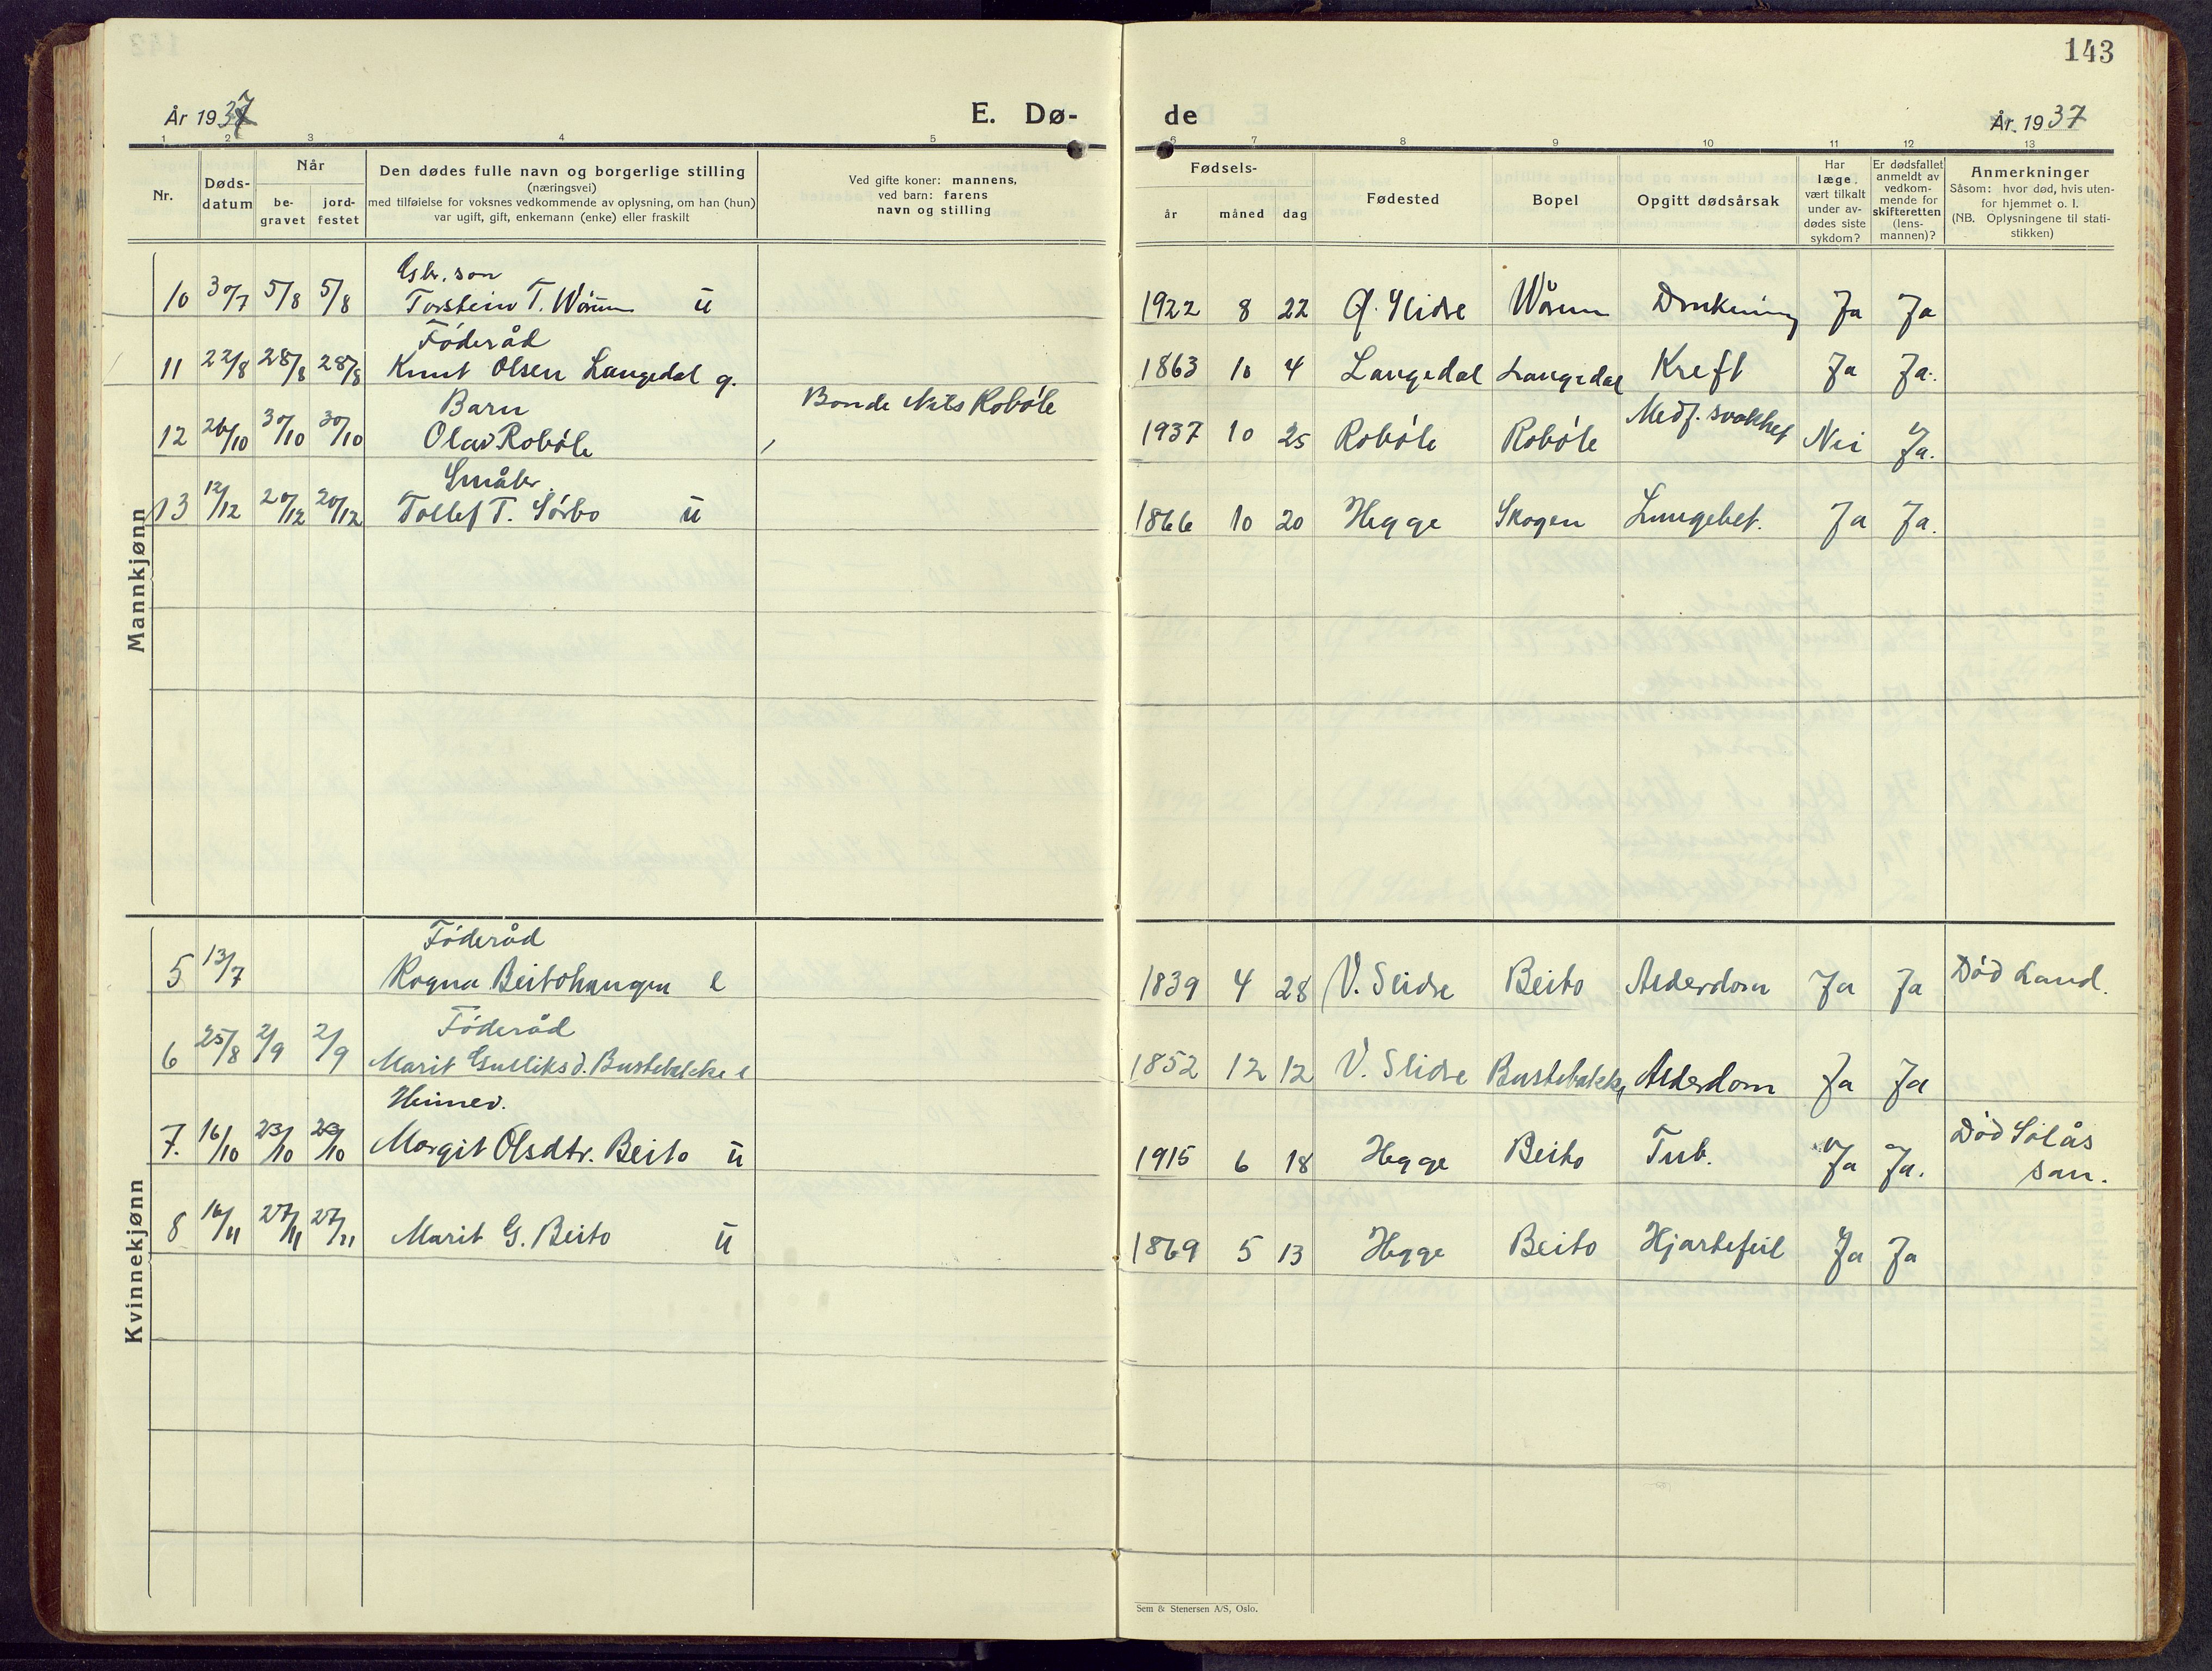 143
År 1937
E. Dø-
de
År. 1937
1 2 3 4 5 6 7 8 9 10 11 12 13
Nr.
Døds-
datum
Når
be-
gravet
jord-
festet
Den dødes fulle navn og borgerlige stilling
(næringsvei)
med tilføielse for voksnes vedkommende av oplysning, om han (hun)
var ugift, gift, enkemann (enke) eller fraskilt
Ved gifte koner: mannens,
ved barn: farens
navn og stilling
Fødsels-
år måned dag
Fødested
Bopel
Opgitt dødsårsak
Har
læge
vært tilkalt
under av-
dødes siste
sykdom?
Er dødsfallet
anmeldt av
vedkom-
mende for
skifteretten
(lens-
mannen)?
Anmerkninger
Såsom: hvor død, hvis uten-
for hjemmet o. l.
(NB. Oplysningene til stati-
stikken)
Mannkjønn
Gbr. son
10 30/7 5/8 5/8 Torstein T. Wårum ū 1922 8 22 Ø. Slidre Wårum Drukning Ja Ja
Föderåd
11 22/8 28/8 28/8 Knut Olsen Langedal g. 1863 10 4 Langedal Langedal Kreft Ja Ja.
Barn
12 26/10 30/10 30/10 Olav Robøle Bonde Nils Robøle 1937 10 25 Robøle Robøle Medf. svakhet Nei Ja.
Småbr.
13 12/12 20/12 20/12 Tollef T. Sørbo ū 1866 10 20 Hegge Skogen Lungebet. Ja Ja.
Kvinnekjønn
Föderåd
5 13/7 Ragna Beitohaugen e 1839 4 28 V. Slidre Beito Alderdom Ja Ja Død Land.
Föderåd
6 25/8 2/9 2/9 Marit Gulliksd. Bustebakke e 1852 12 12 V. Slidre Bustebakke Alderdom Ja Ja
Heimev.
7. 16/10 23/10 23/10 Margit Olsdtr. Beito ū 1915 6 18 Hegge Beito Tub. Ja Ja. Død Solås
san.
8 16/11 27/11 27/11 Marit G. Beito ū 1869 5 13 Hegge Beito Hjartefeil Ja Ja
Sem & Stenersen A/S, Oslo.